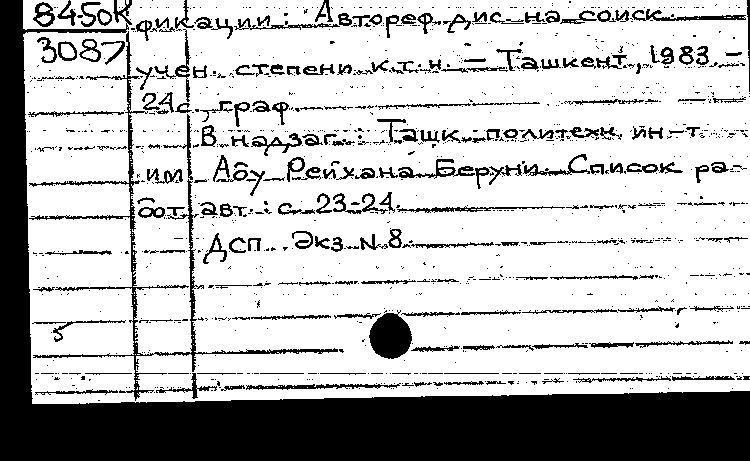 8450к фикации: Автореф. дис. на соиск.
3087 учен. степени к.т.н. — Ташкент, 1983. –
24с., граф.
В надзаг.: Ташк. политехн. ин-т
им. Абу Рейхана Беруни. Список ра-
бот авт.: с. 23-24.
ДСП. Экз. N 8.
5